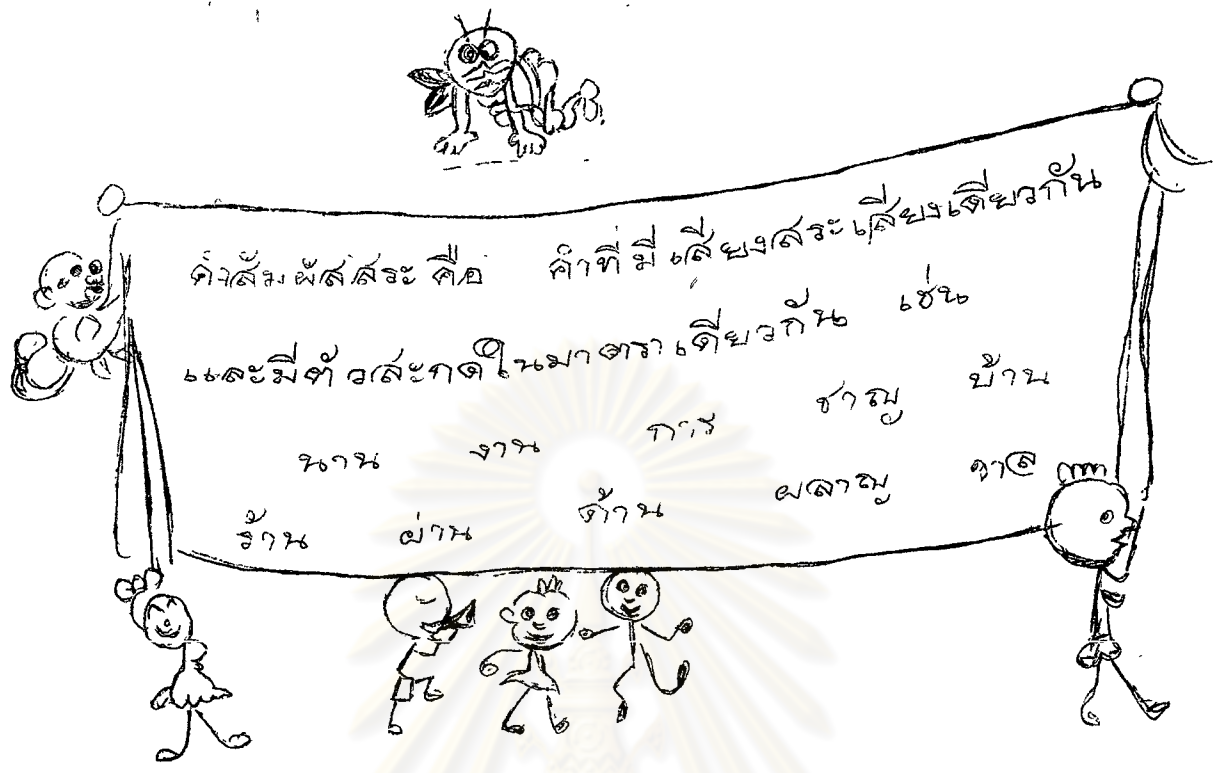 คำสัมผัสสระ คือ คำที่มีเสียงสระเสียงเดียวกัน
และมีตัวสะกดในมาตราเดียวกัน เช่น
นาน งาน การ ชาญ บ้าน
ร้าน ผ่าน ด้าน ผลาญ